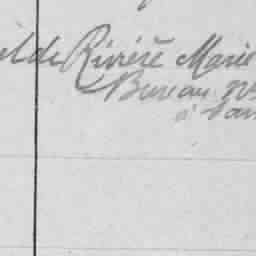 el de Rivière Marie
Bureau No
à